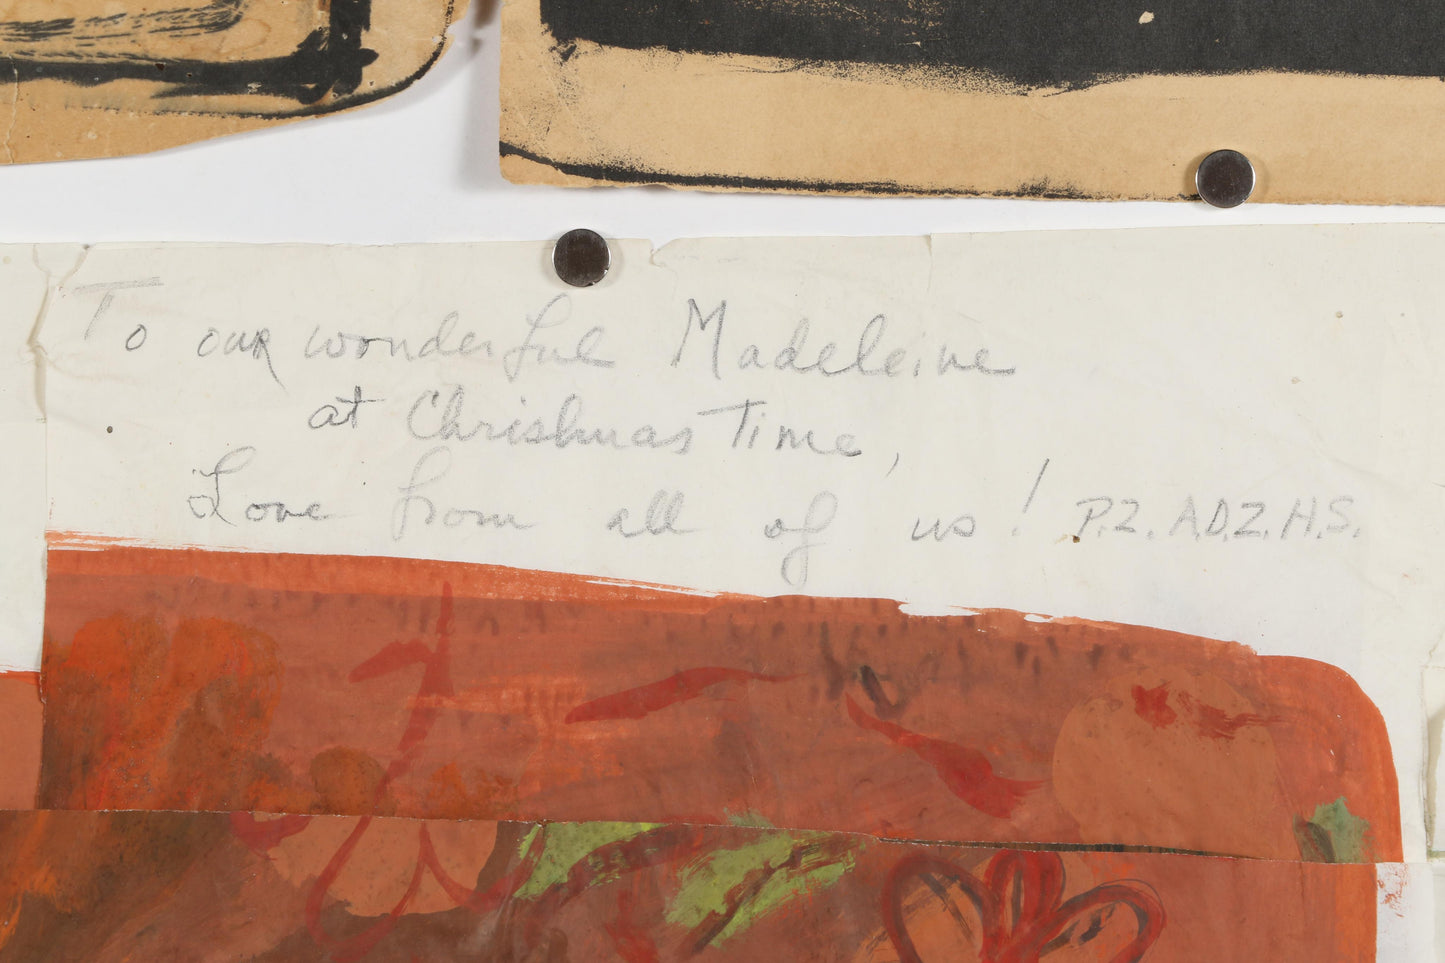 To our wonderful Madeleine
at Christmas Time,
Love from all of us! P.Z. A.D.Z. H.S.